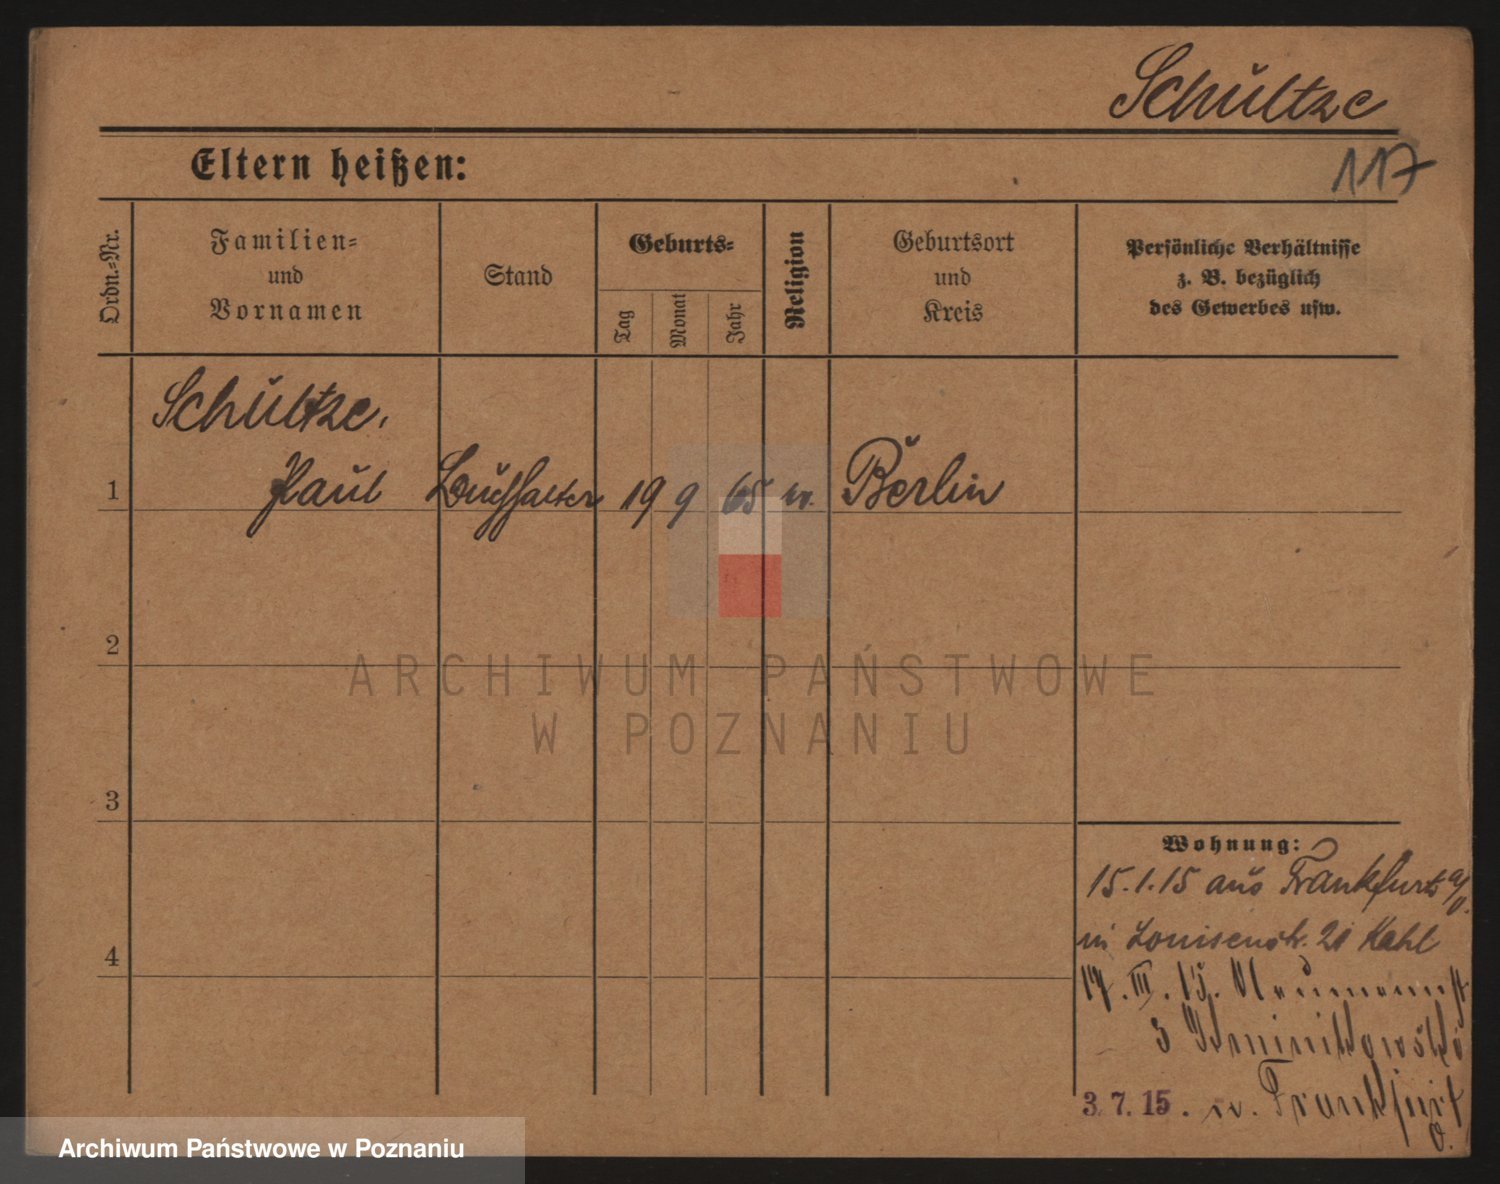 Schultze
117
Eltern heißen:
Ordn.-Nr.
Familien-
und
Vornamen
Stand
Geburts-
Tag
Monat
Jahr
Religion
Geburtsort
und
Kreis
Persönliche Verhältnisse
z. B. bezüglich
des Gewerbes usw.
Schultze,
1 Paul Buchhalter 19 9 65 ev. Berlin
2
ARCHIWUM PAŃSTWOWE
W POZNANIU
3
4
Wohnung:
15.1.15 aus Frankfurt a/O.
in Louisenstr. 21 Kahl
17.III.15. Neumannstr
3
3.7.15. n. Frankfurt
O.
Archiwum Państwowe w Poznaniu